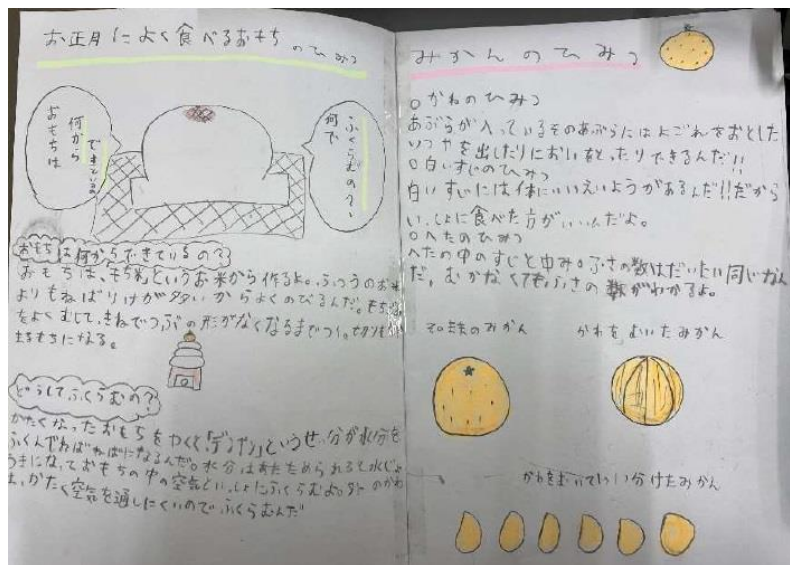 お正月によく食べるおもちのひみつ
おもちは
何から
できているの
何で
ふくらむの?
おもちは何からできているの?
おもちは、もち米というお米から作るよ。ふつうのお米
よりもねばりけが多いからよくのびるんだ。もち米
をよくむして、きねでつぶの形がなくなるまでつく。切りもち
まるもちになる。
どうしてふくらむの?
かたくなったおもちをやくと、「デンプン」というせい分が水分を
ふくんでねばねばになるんだ。水分はあたためられると水じょ
うきになっておもちの中の空気といっしょにふくらむよ。外のかわ
は、かたく空気を通しにくいのでふくらむんだ
みかんのひみつ
○かわのひみつ
あぶらが入っているそのあぶらにはよごれをおとした
りつやを出したりにおいをとったりできるんだ!!
○白いすじのひみつ
白いすじには体にいいえいようがあるんだ!!だから
いっしょに食べた方がいいんだよ。
○へたのひみつ
へたの中のすじと中み。ふさの数はだいたい同じなん
だ。むかなくてもふさの数がわかるよ。
のみかん
かわをむいたみかん
かわをむいて1つ1つ分けたみかん